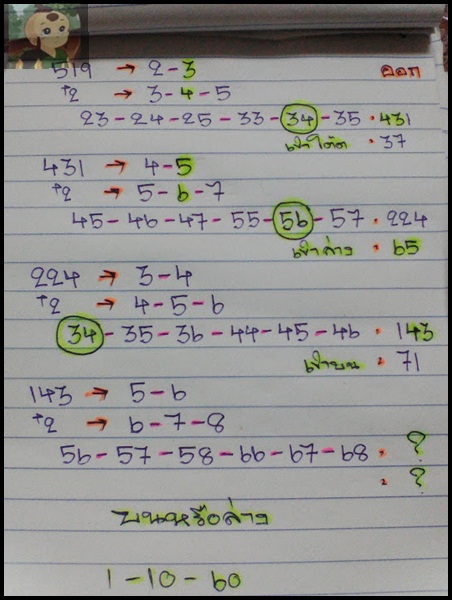 519 → 2-3 ออก
+2 → 3-4-5
23-24-25-33-34-35 · 431
เข้าโต๊ด · 37
431 → 4-5
+2 → 5-6-7
45-46-47-55-56-57 · 224
เข้าล่าง · 65
224 → 3-4
+2 → 4-5-6
34-35-36-44-45-46 · 143
เข้าบน · 71
143 → 5-6
+2 → 6-7-8
56-57-58-66-67-68 · ?
· ?
บนหรือล่าง
1-10-60